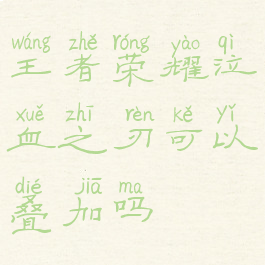 wáng zhě róng yào qì
王者荣耀泣
xuě zhī rèn kě yǐ
血之刃可以
dié jiā ma
叠加吗